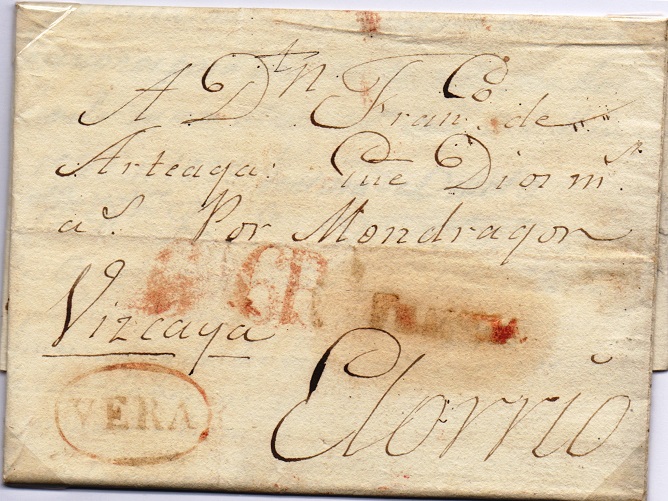 A Dn. Franco. de
Arteaga: Que Dios m.s
a.s Por Mondragon
Vizcaya
Elorrio
VERA